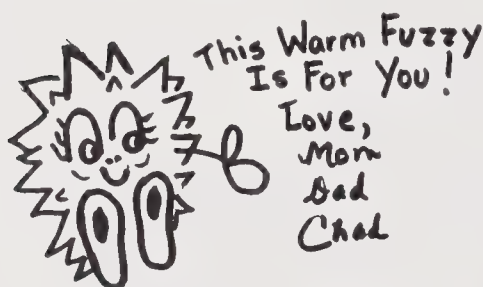 This Warm Fuzzy
Is For You!
Love,
Mom
Dad
Chad